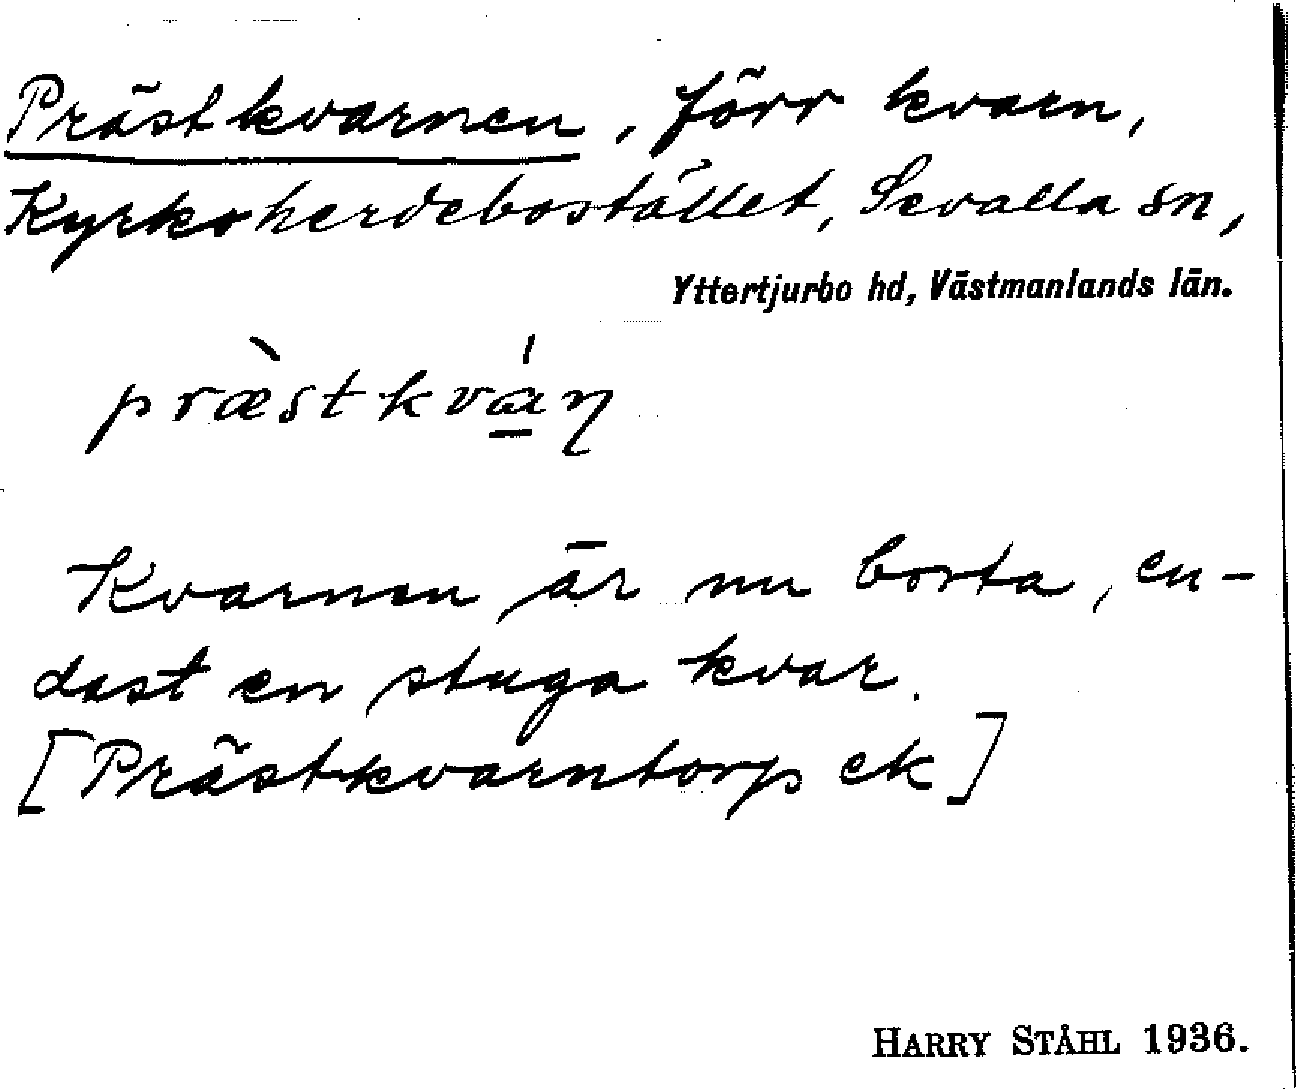 Prästkvarnen, förr kvarn,
Kyrkoherdebostället, Sevalla sn,
Yttertjurbo hd, Västmanlands län.
præ̀stkvá̱ɳ
Kvarnen är nu borta, en-
dast en stuga kvar.
[Prästkvarntorp ek]
HARRY STÅHL 1936.